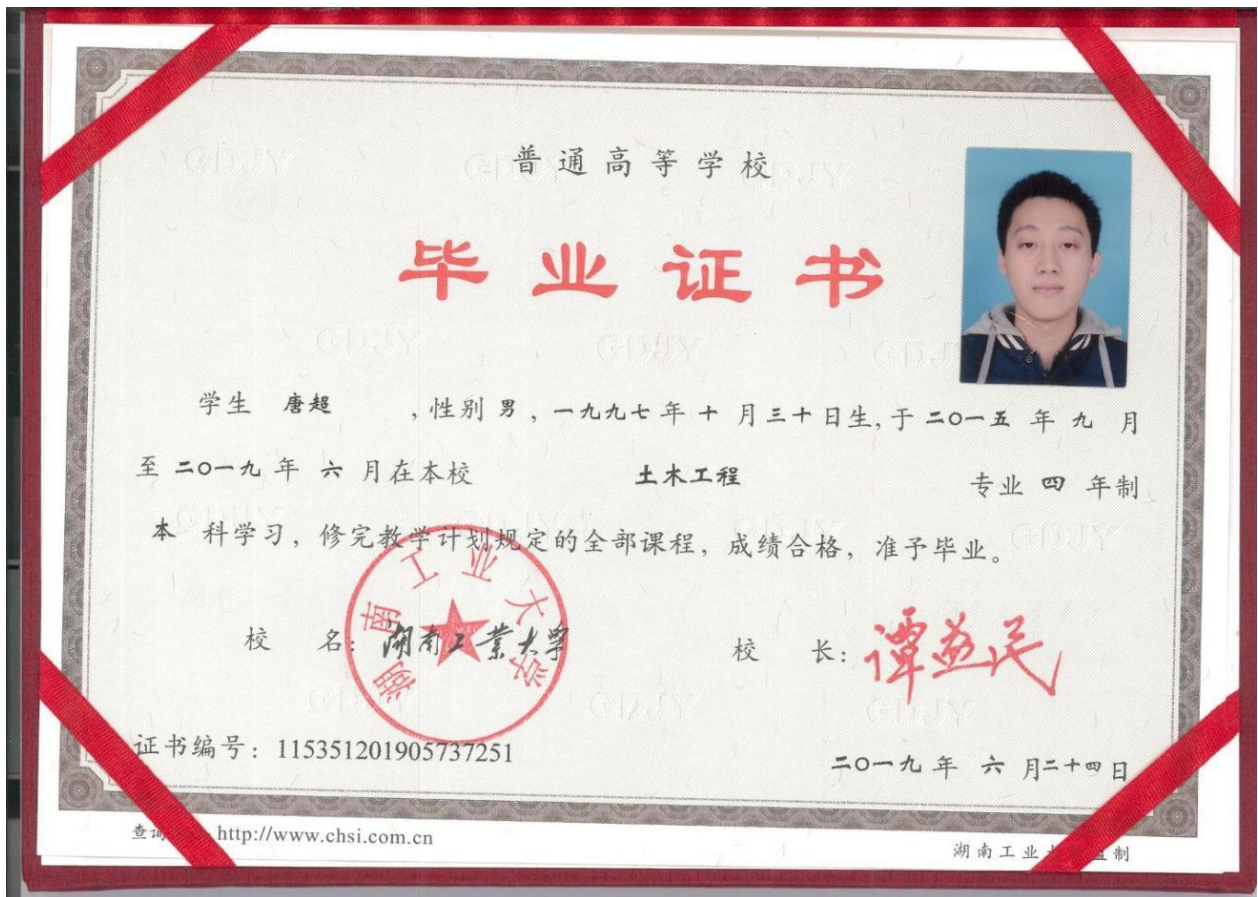 普通高等学校
毕业证书
学生 唐超 ，性别 男 ，一九九七 年 十 月 三十 日生，于 二〇一五 年 九 月
至 二〇一九 年 六 月在本校 土木工程 专业 四 年制
本 科学习，修完教学计划规定的全部课程，成绩合格，准予毕业。
湖南工业大学
校 名：湖南工業大學 校 长：谭益民
证书编号：115351201905737251
二〇一九 年 六 月二十四日
查询 http://www.chsi.com.cn
湖南工业 监制